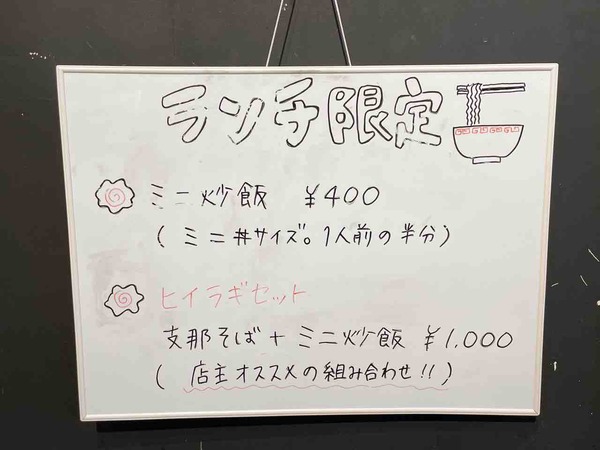 ランチ限定
ミニ炒飯 ¥400
(ミニ丼サイズ。1人前の半分)
ヒイラギセット
支那そば+ミニ炒飯 ¥1,000
(店主オススメの組み合わせ!!)